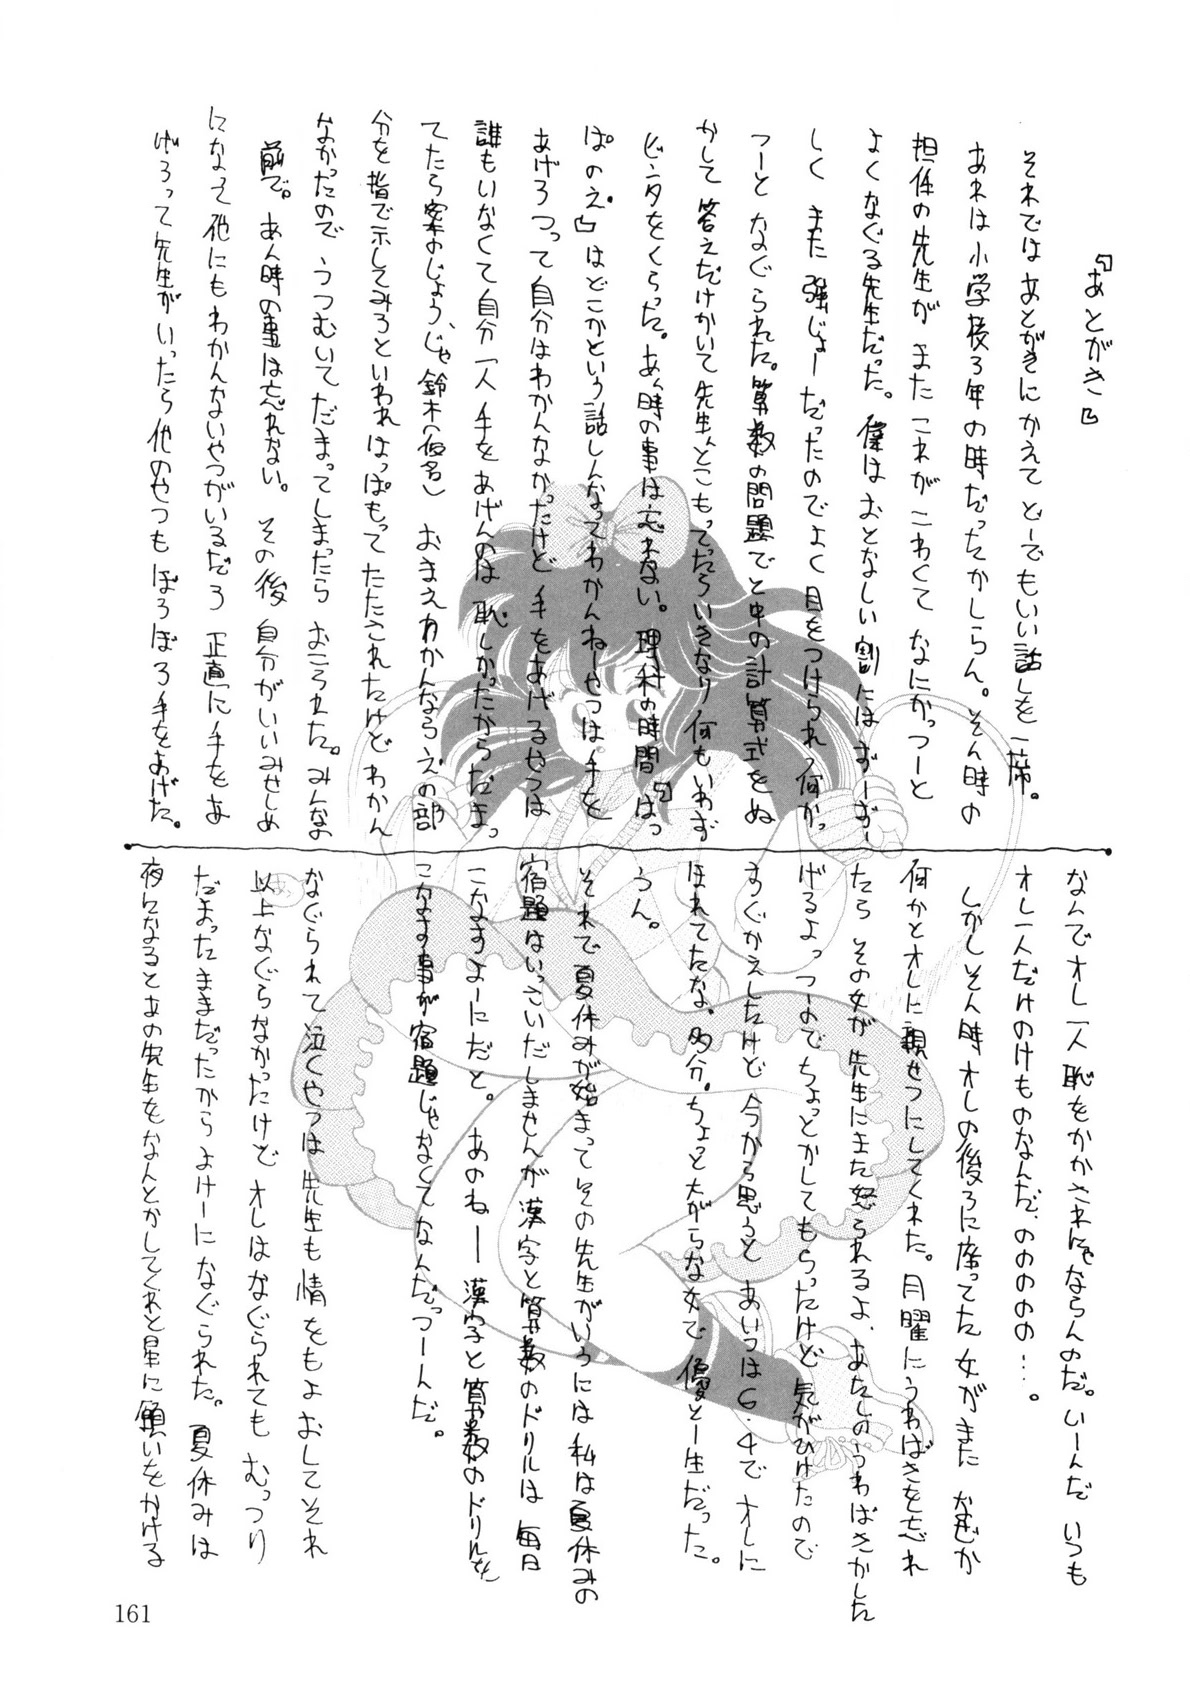 『あとがき』
それではあとがきにかえて どーでもいい話しを一席。
あれは小学校3年の時だったかしらん。そん時の
担任の先生が また これが こわくて なにかっつーと
よくなぐる先生だった。僕はおとなしい割にはずーずー
しく また 強じょーだったのでよく目をつけられ 何かっ
つーと なぐられた。算数の問題でと中の計算式をぬ
かして 答えだけかいて 先生んとこもってったらいきなり 何もいわず
ビンタをくらった。あん時の事は忘れない。理科の時間『はっ
ぱのえ。』はどこかという話しんなってわかんねーやつは手を
あげろつって 自分はわかんなかったけど 手をあげるやつは
誰もいなくて自分一人 手をあげんのは 恥しかったからだまっ
てたら案のじょう、じゃ鈴木(仮名) おまえわかんならえの部
分を指で示してみろといわれ はっぱもって たたされたけど わかん
なかったので うつむいて だまってしまったら おこられた。みんなの
前で。あん時の事は忘れない。 その後 自分がいいみせしめ
になって他にもわかんないやつがいるだろ 正直に手をあ
げろって先生がいったら他のやつも ぼろぼろ手をあげた。
なんでオレ一人 恥をかかされにゃならんのだ。いーんだ いつも
オレ一人だけのけものなんだ。ののののの…。
しかし そん時オレの後ろに座ってた 女がまた なぜか
何かとオレに親せつにしてくれた。月曜にうわばきを忘れ
たら その女が 先生にまた怒られるよ、あたしのうわばきかした
げるよっつーのでちょっとかしてもらったけど 気がひけたので
すぐかえしたけど 今から思うと あいつは6.4で オレに
ほれてたな、多分。ちょっと大がらな女で 優とー生だった。
うん。
それで 夏休みが始まって その先生がいうには 私は夏休みの
宿題はいっさいだしませんが 漢字と算数のドリルは 毎日
こなすよーにだと。 あのねー 漢字と算数のドリルを
こなす事が宿題じゃなくてなんだっつーんだ。
なぐられて泣くやつは 先生も情をもよおしてそれ
以上なぐらなかったけど オレはなぐられても むっつり
だまったままだったから よけーに なぐられた。夏休みは
夜になるとあの先生をなんとかしてくれと星に願いをかける
161